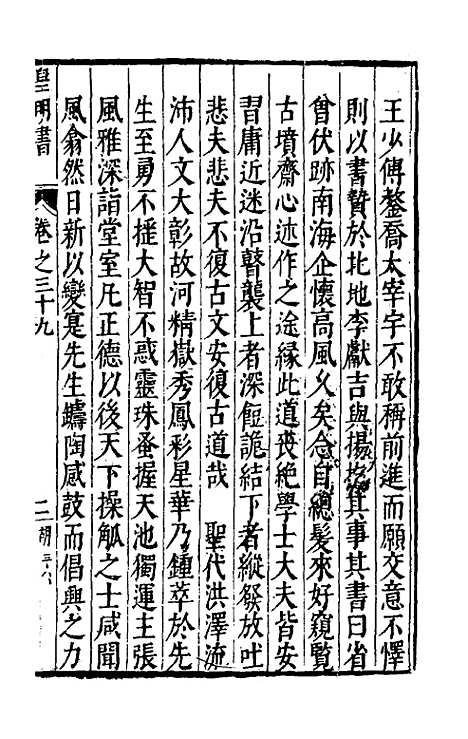 王少傅鏊喬太宰宇不敢稱前進而願交意不懌
則以書贄於北地李獻吉與揚搉其事其書曰省
曾伏跡南海企懷高風久矣念自總髮來好窺覽
古墳齋心述作之途緣此道喪絕學士大夫皆安
習庸近迷沿瞽襲上者深餖詭結下者縱發放吐
悲夫悲夫不復古文安復古道哉　聖代洪澤流
沛人文大彰故河精嶽秀鳳彩星華乃鍾萃於先
生至勇不摧大智不惑靈珠蚤握天池獨運主張
風雅深詣堂室凡正德以後天下操觚之士咸聞
風翕然日新以變寔先生鑄陶感鼓而倡興之力
皇明書　卷之三十九　二